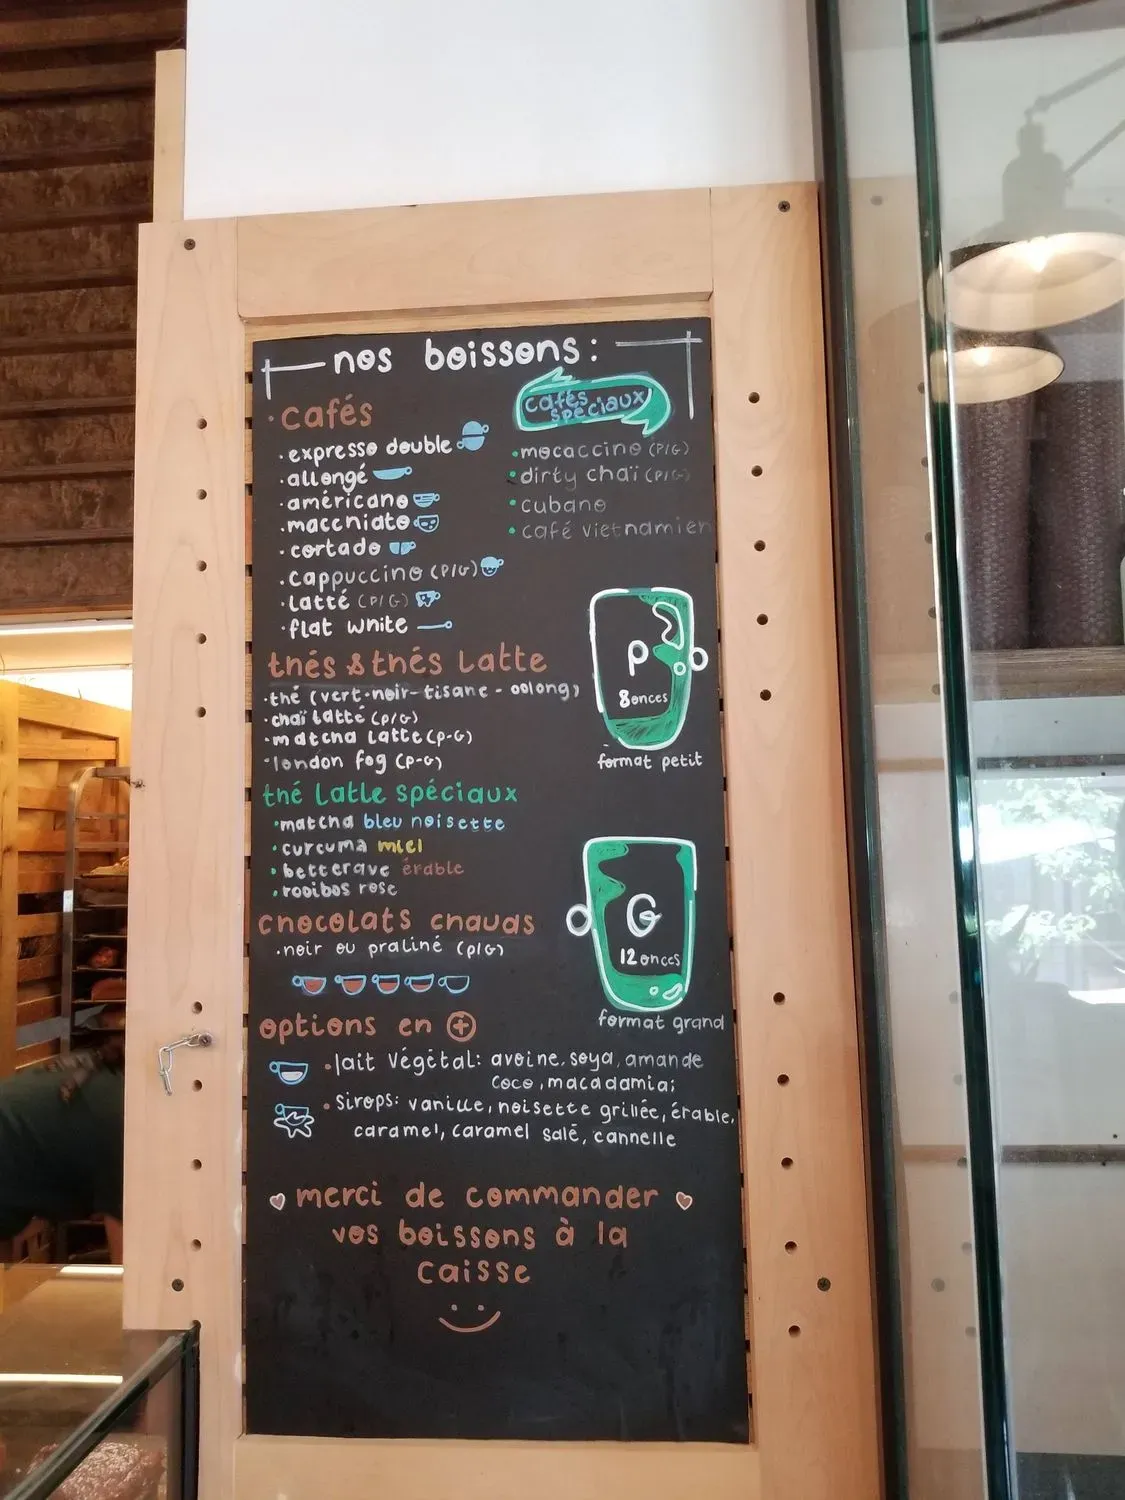 nos boissons:
cafés
expresso double
allongé
américano
macchiato
cortado
cappuccino (P/G)
latté (P/G)
flat white
cafés
spéciaux
mocaccino (P/G)
dirty chaï (P/G)
cubano
café vietnamien
thés & thés Latte
thé (vert-noir-tisane-oolong)
chaï latté (P/G)
matcha latte (P-G)
london fog (P-G)
thé Latte spéciaux
matcha bleu noisette
curcuma miel
betterave érable
rooibos rose
chocolats chauds
noir ou praliné (P/G)
P
8 onces
format petit
G
12 onces
format grand
options en +
lait végétal: avoine, soya, amande
coco, macadamia;
sirops: vanille, noisette grillée, érable,
caramel, caramel salé, cannelle
merci de commander
vos boissons à la
caisse